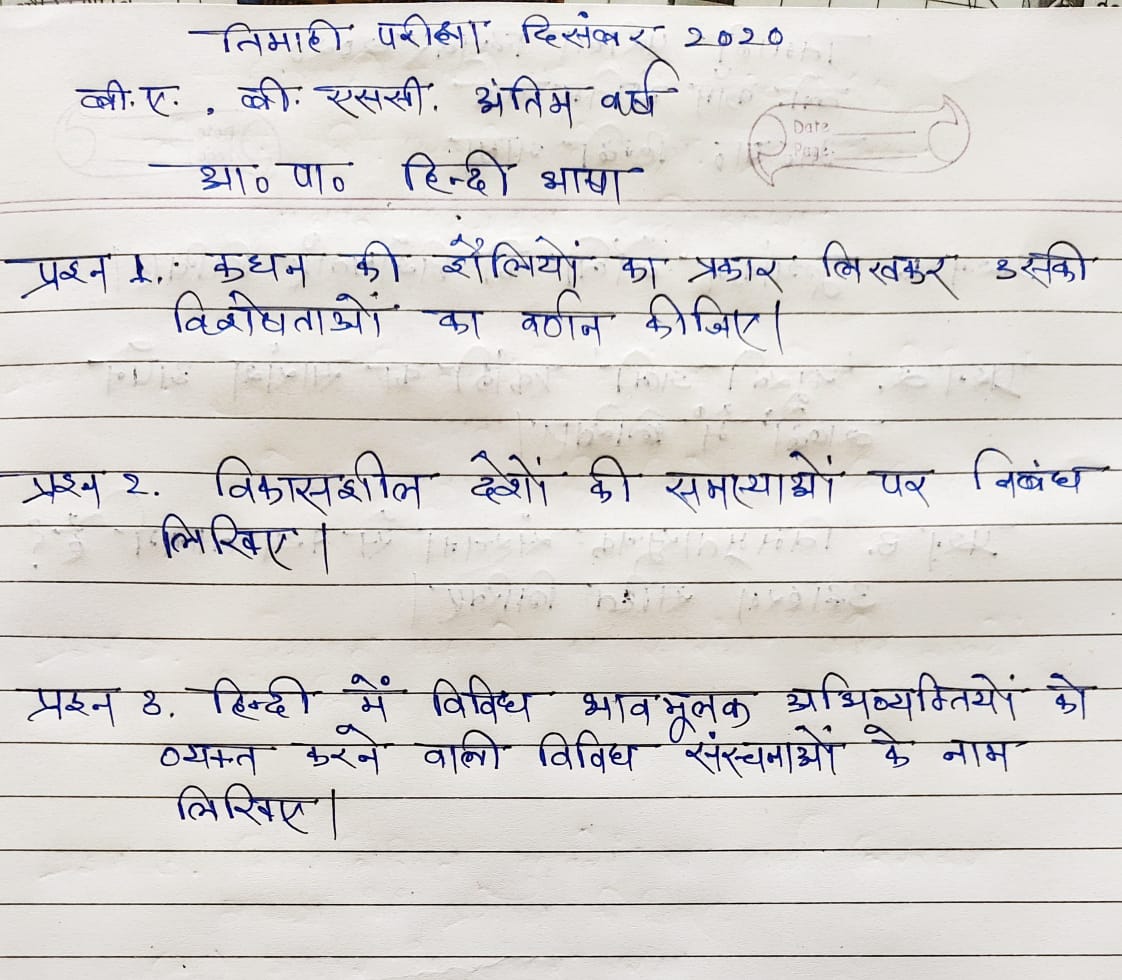 तिमाही परीक्षा दिसंबर 2020
बी.ए. , बी. एससी. अंतिम वर्ष
Date
Page
आ० पा० हिन्दी भाषा
प्रश्न 1. कथन की शैलियों का प्रकार लिखकर उसकी
विशेषताओं का वर्णन कीजिए|
प्रश्न 2. विकासशील देशों की समस्याओं पर निबंध
लिखिए|
प्रश्न 3. हिन्दी में विविध भावमूलक अभिव्यक्तियों को
व्यक्त करने वाली विविध संरचनाओं के नाम
लिखिए|